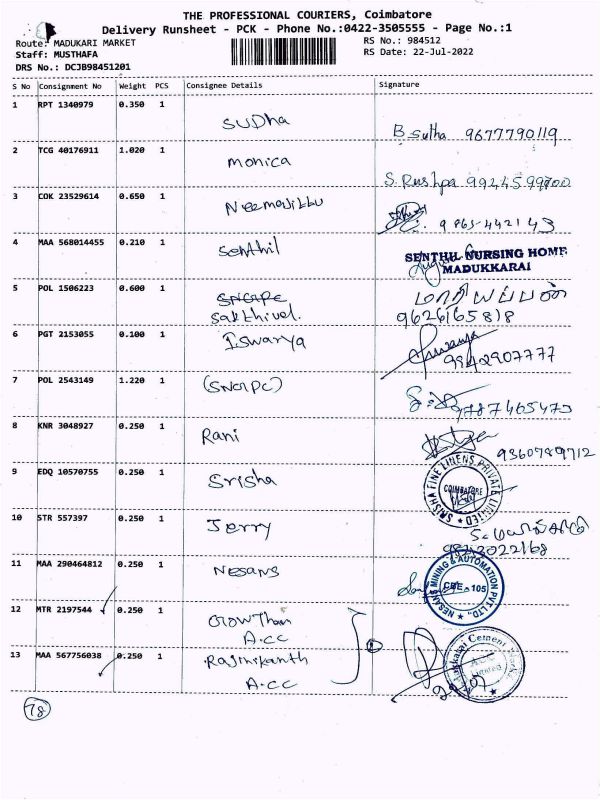 THE PROFESSIONAL COURIERS, Coimbatore
Delivery Runsheet - PCK - Phone No.:0422-3505555 - Page No.:1
Route: MADUKARI MARKET
RS No.: 984512
Staff: MUSTHAFA
RS Date: 22-Jul-2022
DRS No.: DCJB98451201
S No Consignment No Weight PCS Consignee Details Signature
1 RPT 1340979 0.350 1 SUDha
B Sutha 9677790119
2 TCG 40176911 1.020 1 monica
S. 9924599700
3 COK 23529614 0.650 1
9865442143
4 MAA 568014455 0.210 1 Senthil
SENTHIL NURSING HOME
MADUKKARAI
5 POL 1506223 0.600 1
Sakthivel. 9626165818
மாரியப்பன்
6 PGT 2153055 0.100 1 Iswarya
9942907777
7 POL 2543149 1.220 1 (SNGPC)
9787465473
8 KNR 3048927 0.250 1 Rani
9360789712
9 EDQ 10570755 0.250 1 Srisha
SRISHA FINE LINENS PRIVATE LIMITED
COIMBATORE
10 STR 557397 0.250 1 Jerry
11 MAA 290464812 0.250 1 Nesans
NESANS MINING & AUTOMATION PVT. LTD.,
CBE - 105
12 MTR 2197544 0.250 1 Gowtham
A.CC
13 MAA 567756038 0.250 1 Rajinikanth
A.CC
Madukkarai Cement Works
ACC
Limited
78